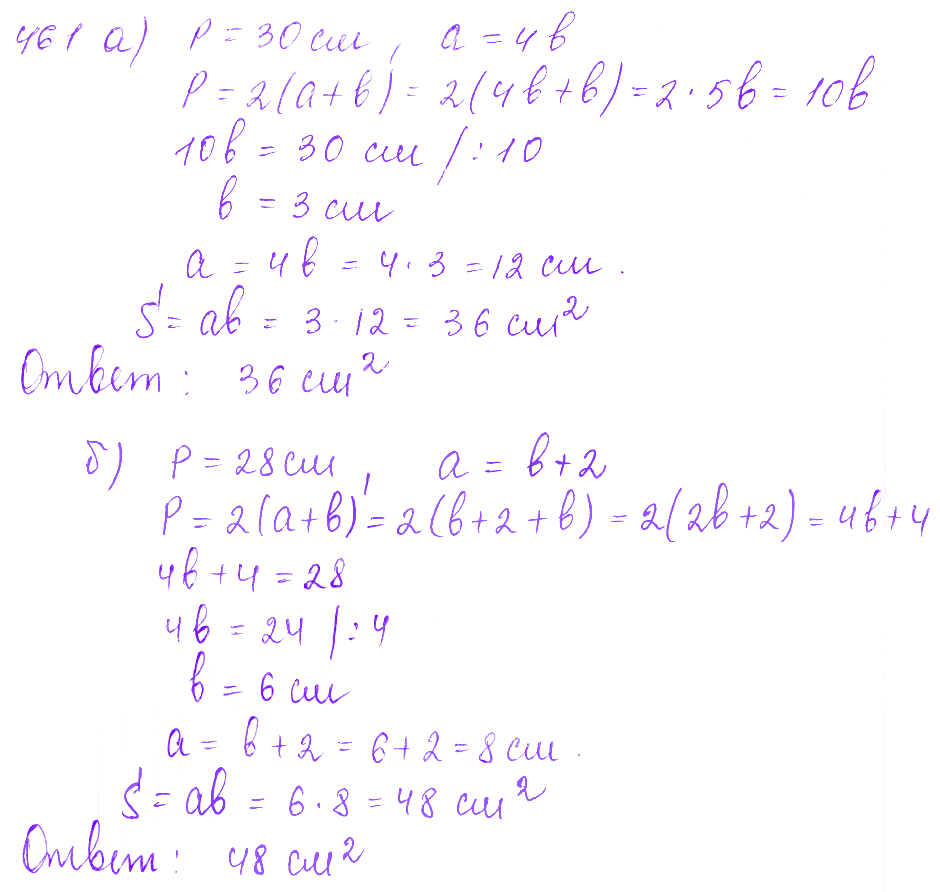 461 а) P = 30 см, a = 4b
P = 2(a+b) = 2(4b+b) = 2·5b = 10b
10b = 30 см /:10
b = 3 см
a = 4b = 4·3 = 12 см.
S = ab = 3·12 = 36 см²
Ответ: 36 см²
б) P = 28 см, a = b+2
P = 2(a+b) = 2(b+2+b) = 2(2b+2) = 4b+4
4b+4 = 28
4b = 24 /:4
b = 6 см
a = b+2 = 6+2 = 8 см.
S = ab = 6·8 = 48 см²
Ответ: 48 см²